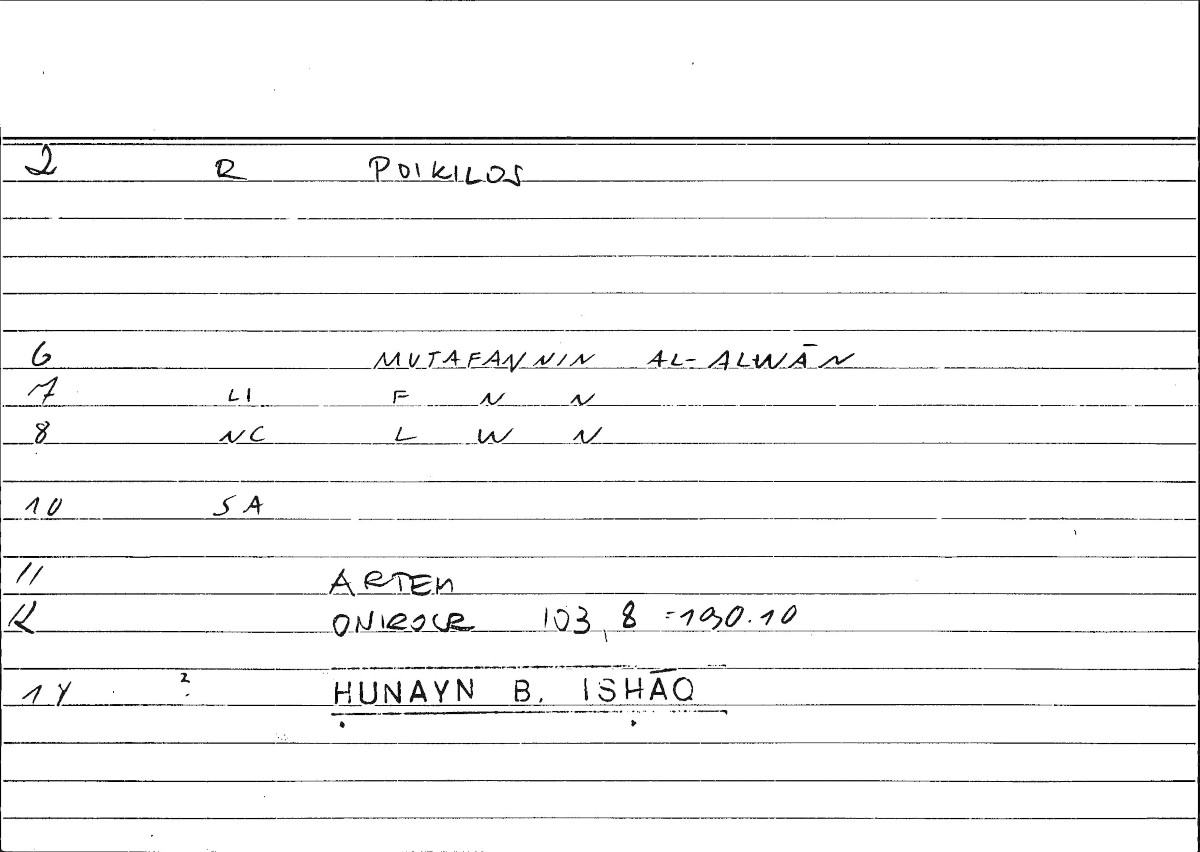 2 R POIKILOS
6 MUTAFANNIN AL-ALWĀN
7 LI F N N
8 NC L W N
10 SA
11 ARTEM
12 ONIROCR 103,8 =190.10
14 ? ḤUNAYN B. ISḤĀQ